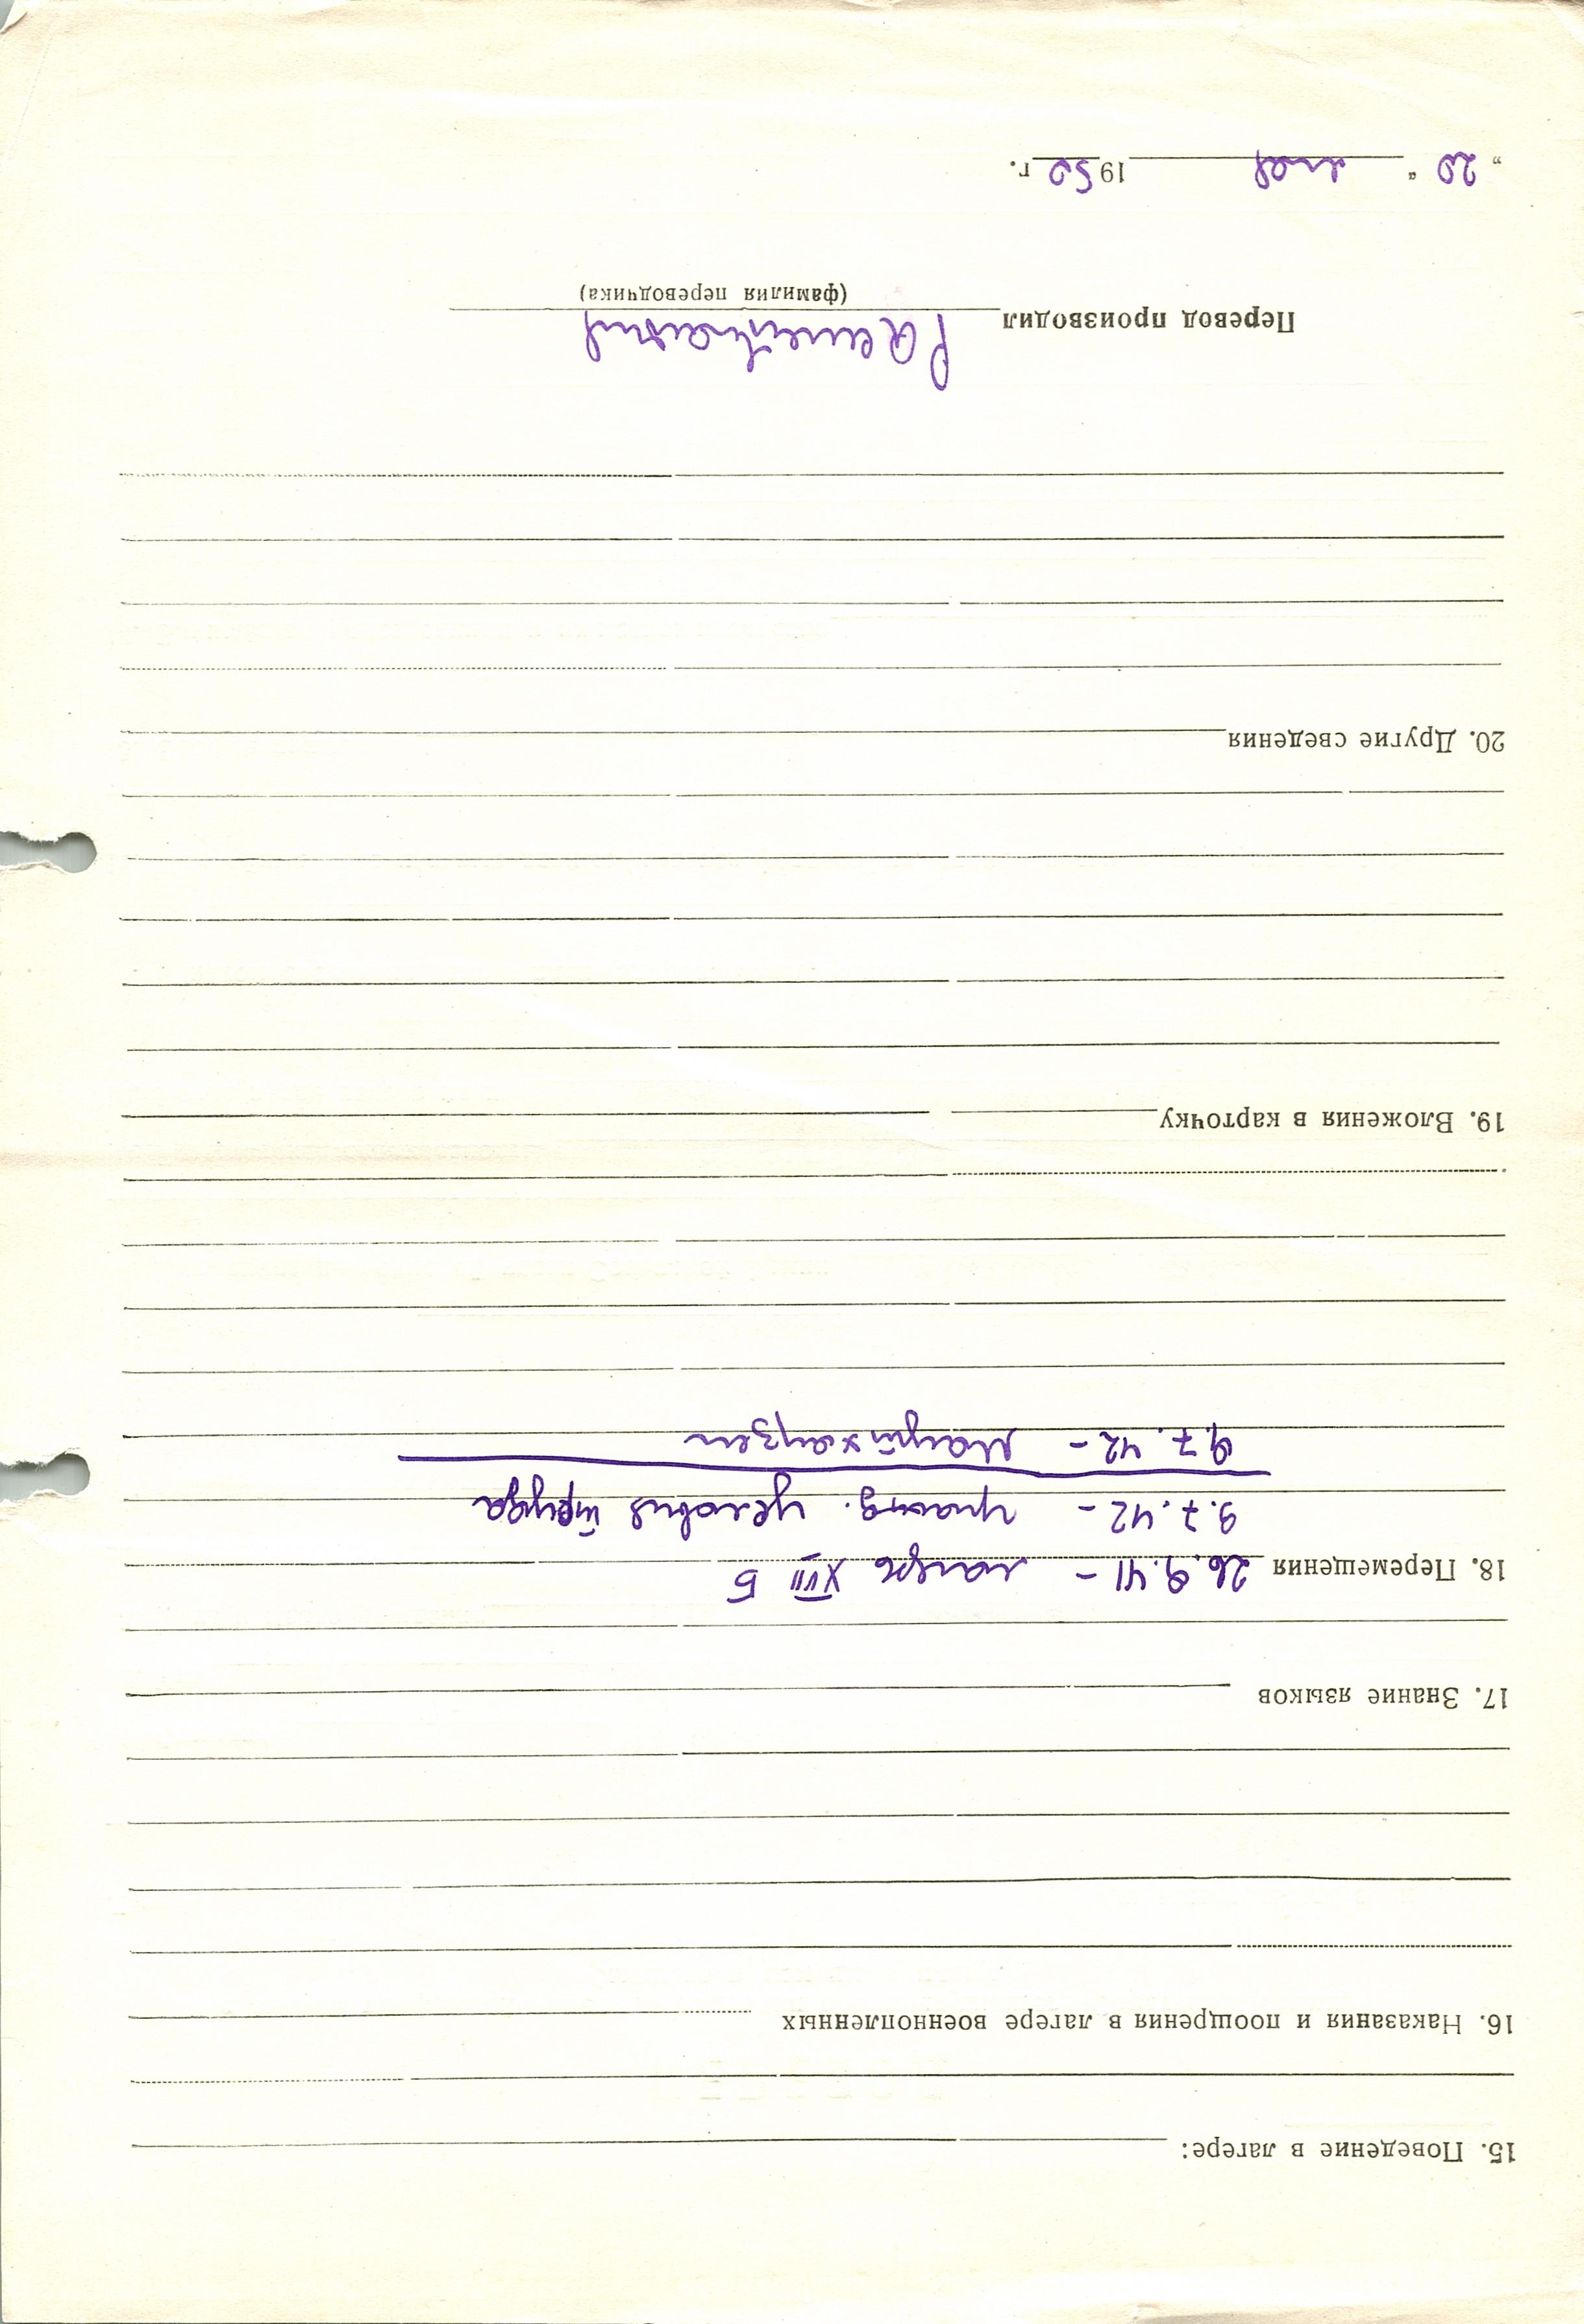 15. Поведение в лагере:
16. Наказания и поощрения в лагере военнопленных
17. Знание языков
18. Перемещения 26.9.41 – лагерь XVII Б
9.7.42 – условия труда
9.7.42 – Маутхаузен
19. Вложения в карточку
20. Другие сведения
Перевод производил
(фамилия переводчика)
„20“ мая 1950 г.